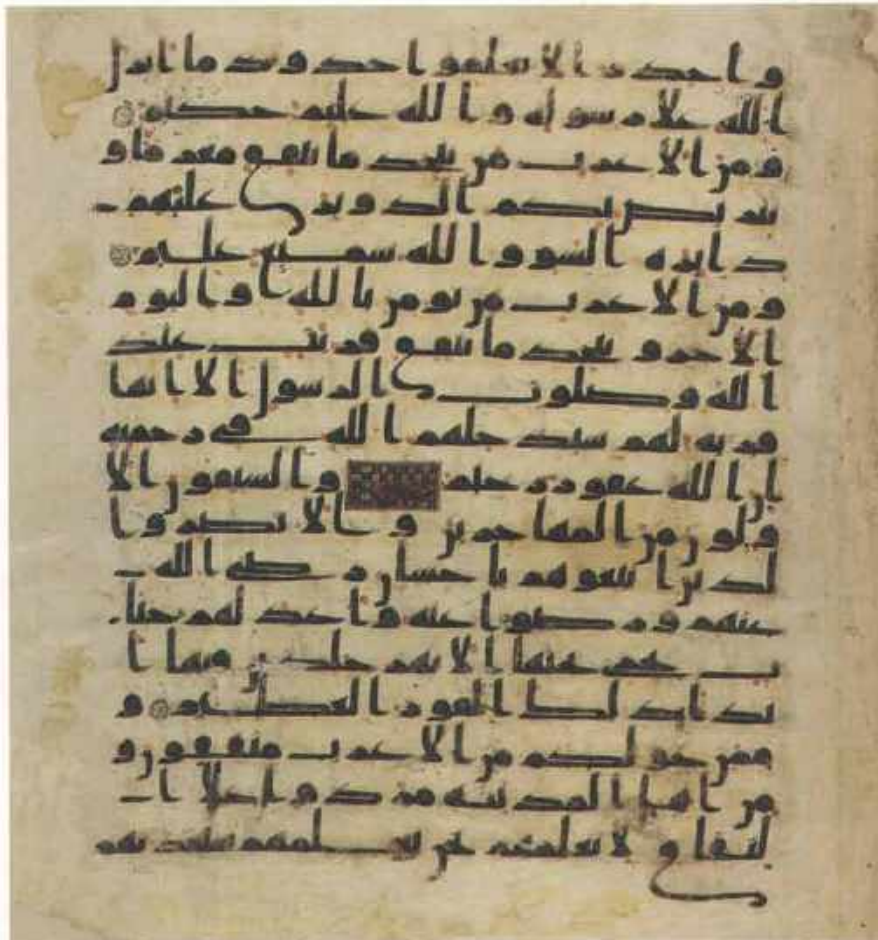 واجدر الا يعلموا حدود ما انزل
الله على رسوله والله عليم حكيم
ومن الاعراب من يتخذ ما ينفق مغرما و
يتربص بكم الدوائر عليهم
دائرة السوء والله سميع عليم
ومن الاعراب من يؤمن بالله واليوم
الاخر ويتخذ ما ينفق قربت عند
الله وصلوت الرسول الا انها
قربة لهم سيدخلهم الله في رحمته
ان الله غفور رحيم والسبقون الا
ولون من المهاجرين والانصار وا
لذين اتبعوهم باحسان رضي الله
عنهم ورضوا عنه واعد لهم جنا
ت تجري تحتها الانهر خلدين فيها ا
بدا ذلك الفوز العظيم و
ممن حولكم من الاعراب منفقون و
من اهل المدينة مردوا على ا
لنفاق لا تعلمهم نحن نعلمهم سنعذبهم